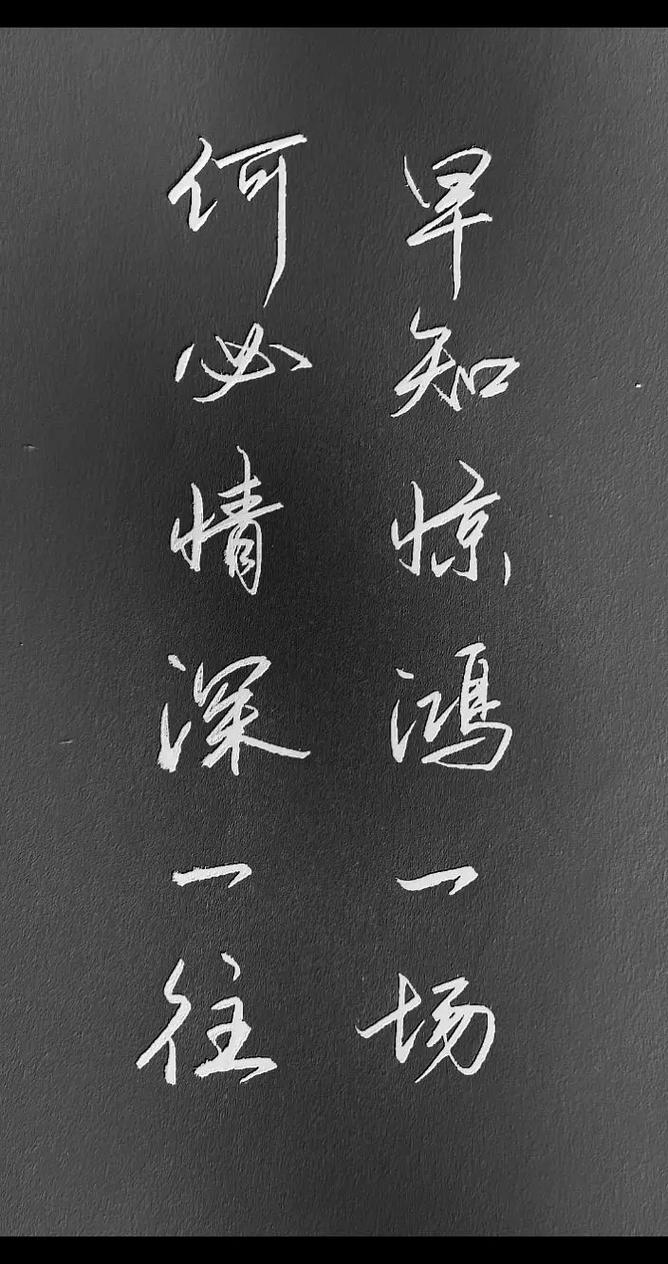 早知惊鸿一场
何必情深一往